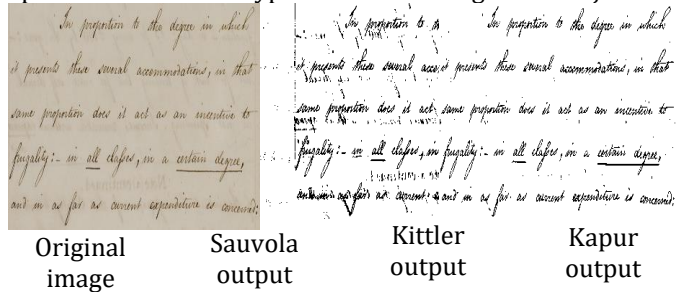 In proportion to the degree in which
it presents these several accommodations, in that
same proportion does it act as an incentive to
frugality:- in all classes, in a certain degree,
and in as far as current expenditure is concerned:
In proportion to
it presents these several
same proportion does it act
frugality:- in all classes, in
and in as far as current
In proportion to the degree in which
it presents these several accommodations, in that
same proportion does it act as an incentive to
frugality:- in all classes, in a certain degree,
and in as far as current expenditure is concerned:
Original
image
Sauvola
output
Kittler
output
Kapur
output